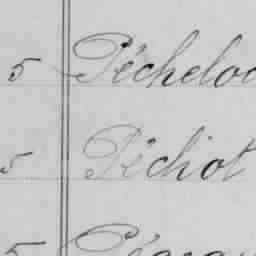 5 Pécheloc
5 Péchot
5